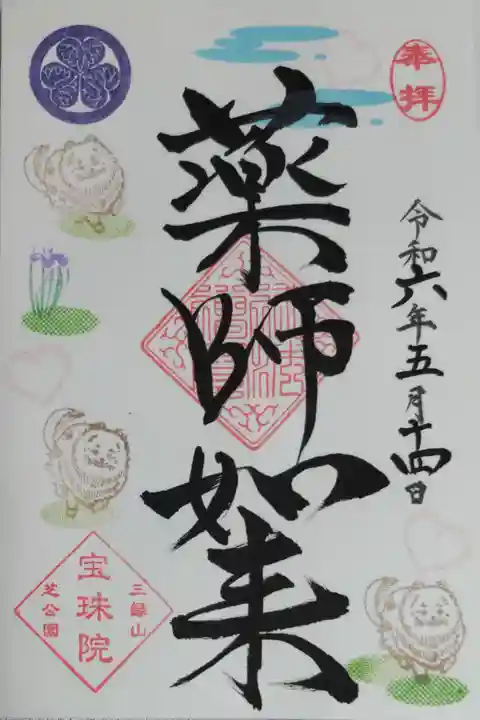 奉拝
令和六年五月十四日
薬師如来
三縁山
宝珠院
芝公園